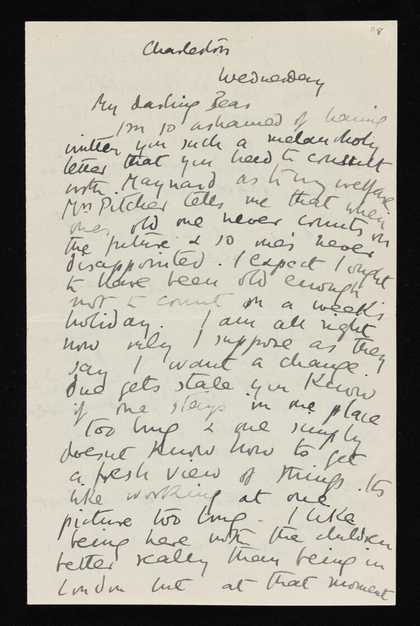 Charleston
Wednesday
My darling Bear
I'm so ashamed of having
written you such a melancholy
letter that you need to consult
with Maynard as to my welfare.
Mrs Pitcher tells me that when
one's old one never counts on
the future & so one's never
disappointed. I expect I ought
to have been old enough
not to count on a week's
holiday. I am all right
now only I suppose as they
say I want a change.
One gets stale you know
if one stays in one place
too long & one simply
doesnt know how to get
a fresh view of things. Its
like working at one
picture too long. I like
being here with the children
better really than being in
London but at that moment